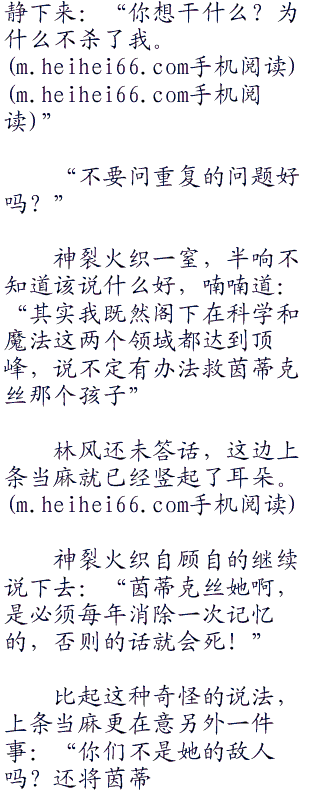 静下来：“你想干什么？为
什么不杀了我。
(m.heihei66.com手机阅读)
(m.heihei66.com手机阅
读)”
“不要问重复的问题好
吗？”
神裂火织一窒，半响不
知道该说什么好，喃喃道：
“其实我既然阁下在科学和
魔法这两个领域都达到顶
峰，说不定有办法救茵蒂克
丝那个孩子”
林风还未答话，这边上
条当麻就已经竖起了耳朵。
(m.heihei66.com手机阅读)
神裂火织自顾自的继续
说下去：“茵蒂克丝她啊，
是必须每年消除一次记忆
的，否则的话就会死！”
比起这种奇怪的说法，
上条当麻更在意另外一件
事：“你们不是她的敌人
吗？还将茵蒂